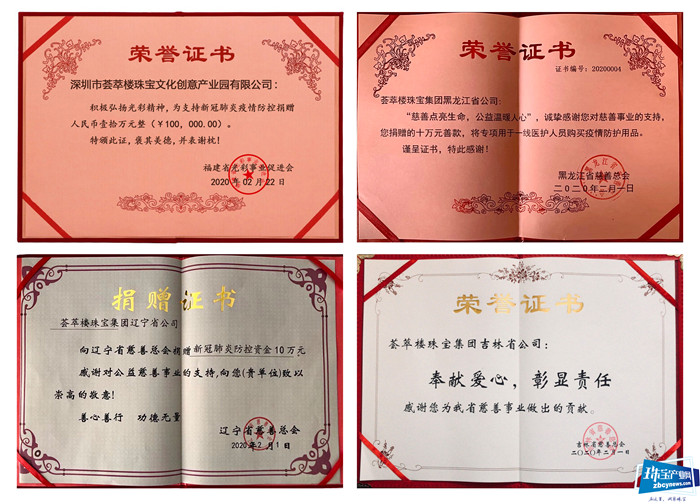 荣誉证书
深圳市荟萃楼珠宝文化创意产业园有限公司：
积极弘扬光彩精神，为支持新冠肺炎疫情防控捐赠
人民币壹拾万元整（￥100，000.00）。
特颁此证，褒其美德，并表谢忱！
福建省光彩事业促进会
2020年02月22日
荣誉证书
证书编号：20200004
荟萃楼珠宝集团黑龙江省公司：
“慈善点亮生命，公益温暖人心”，诚挚感谢您对慈善事业的支持，
您捐赠的十万元善款，将专项用于一线医护人员购买疫情防护用品。
谨呈证书，特此感谢！
黑龙江省慈善总会
二0二0年二月一日
捐赠证书
荟萃楼珠宝集团辽宁省公司
向辽宁省慈善总会捐赠新冠肺炎防控资金10万元
感谢对公益慈善事业的支持，向您(贵单位)致以
崇高的敬意！
善心善行 功德无量
辽宁省慈善总会
2020年2月1日
荣誉证书
荟萃楼珠宝集团吉林省公司：
奉献爱心，彰显责任
感谢您为我省慈善事业做出的贡献。
吉林省慈善总会
二〇二〇年二月一日
珠宝产业网
zbcynews.com